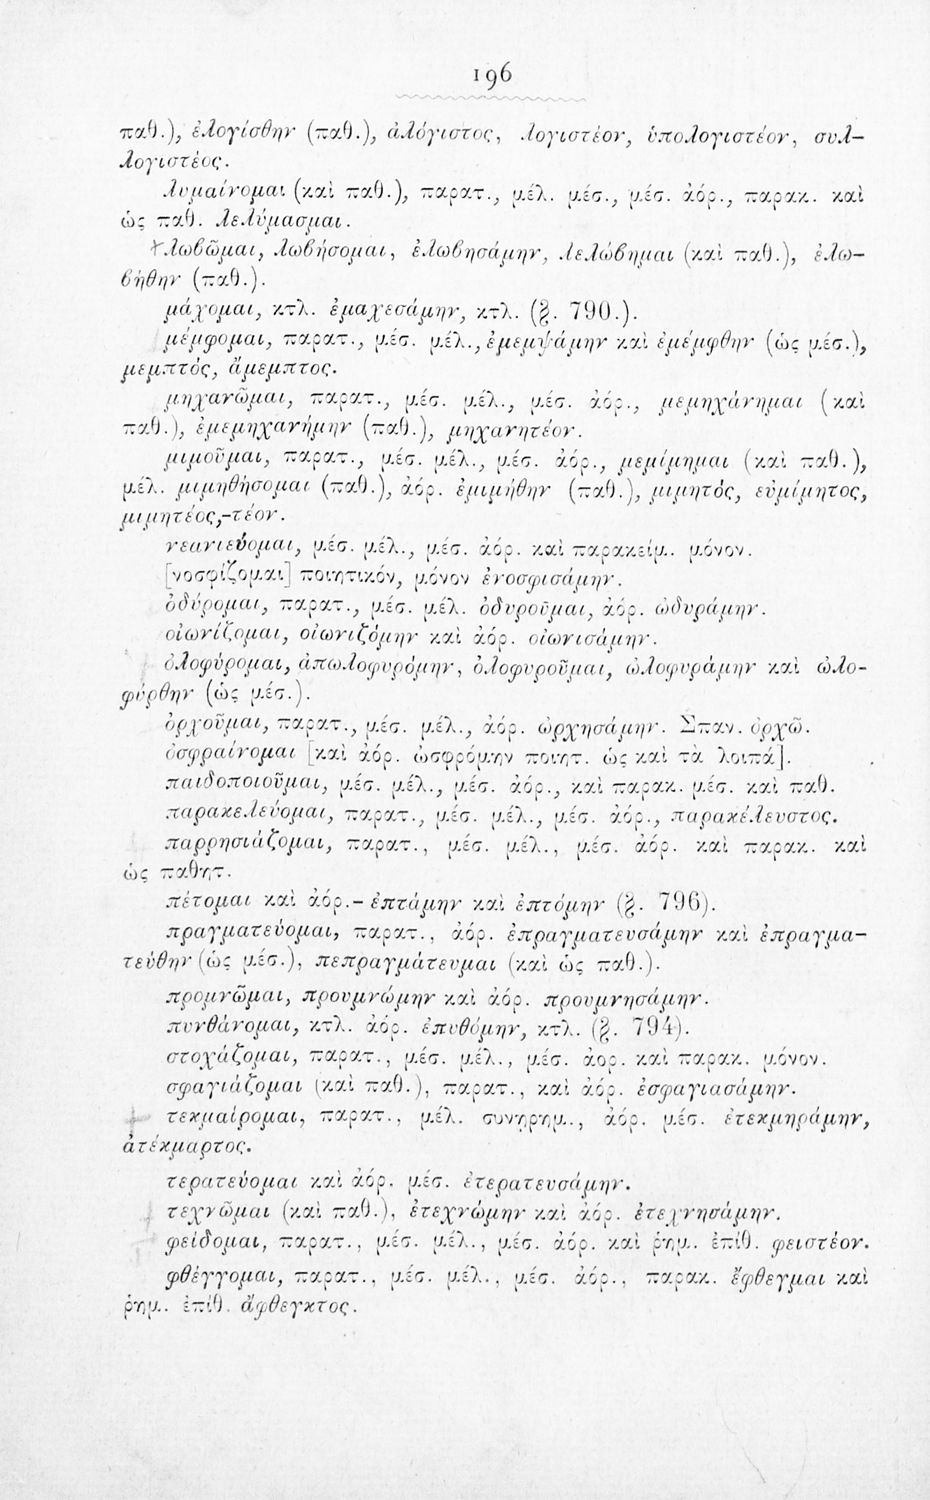 196
παθ.), ἐλογίσθην (παθ.), ἀλόγιστος, λογιστέον, ὑπολογιστέον, συλ-
λογιστέος.
λυμαίνομαι (καὶ παθ.), παρατ., μέλ. μέσ., μέσ. ἀόρ., παρακ. καὶ
ὡς παθ. λελύμασμαι.
λωβῶμαι, λωβήσομαι, ἐλωβησάμην, λελώβημαι (καὶ παθ.), ἐλω-
βήθην (παθ.).
μάχομαι, κτλ. ἐμαχεσάμην, κτλ. (§. 790.).
μέμφομαι, παρατ., μέσ. μέλ., ἐμεμψάμην καὶ ἐμέμφθην (ὡς μέσ.),
μεμπτός, ἄμεμπτος.
μηχανῶμαι, παρατ., μέσ. μέλ., μέσ. ἀόρ., μεμηχάνημαι (καὶ
παθ.), ἐμεμηχανήμην (παθ.), μηχανητέον.
μιμοῦμαι, παρατ., μέσ. μέλ., μέσ. ἀόρ., μεμίμημαι (καὶ παθ.),
μέλ. μιμηθήσομαι (παθ.), ἀόρ. ἐμιμήθην (παθ.), μιμητός, εὐμίμητος,
μιμητέος,-τέον.
νεανιεύομαι, μέσ. μέλ., μέσ. ἀόρ. καὶ παρακείμ. μόνον.
[νοσφίζομαι] ποιητικόν, μόνον ἐνοσφισάμην.
ὀδύρομαι, παρατ., μέσ. μέλ. ὀδυροῦμαι, ἀόρ. ὠδυράμην.
οἰωνίζομαι, οἰωνιζόμην καὶ ἀόρ. οἰωνισάμην.
ὀλοφύρομαι, ἀπωλοφυρόμην, ὀλοφυροῦμαι, ὠλοφυράμην καὶ ὠλο-
φύρθην (ὡς μέσ.).
ὀρχοῦμαι, παρατ., μέσ. μέλ., ἀόρ. ὠρχησάμην. Σπαν. ὀρχῶ.
ὀσφραίνομαι [καὶ ἀόρ. ὠσφρόμην ποιητ. ὡς καὶ τὰ λοιπά].
παιδοποιοῦμαι, μέσ. μέλ., μέσ. ἀόρ., καὶ παρακ. μέσ. καὶ παθ.
παρακελεύομαι, παρατ., μέσ. μέλ., μέσ. ἀόρ., παρακέλευστος.
παρρησιάζομαι, παρατ., μέσ. μέλ., μέσ. ἀόρ. καὶ παρακ. καὶ
ὡς παθητ.
πέτομαι καὶ ἀόρ.- ἐπτάμην καὶ ἐπτόμην (§. 796).
πραγματεύομαι, παρατ., ἀόρ. ἐπραγματευσάμην καὶ ἐπραγμα-
τεύθην (ὡς μέσ.), πεπραγμάτευμαι (καὶ ὡς παθ.).
προμνῶμαι, προυμνώμην καὶ ἀόρ. προυμνησάμην.
πυνθάνομαι, κτλ. ἀόρ. ἐπυθόμην, κτλ. (§. 794).
στοχάζομαι, παρατ., μέσ. μέλ., μέσ. ἀορ. καὶ παρακ. μόνον.
σφαγιάζομαι (καὶ παθ.), παρατ., καὶ ἀόρ. ἐσφαγιασάμην.
τεκμαίρομαι, παρατ., μέλ. συνῃρημ., ἀόρ. μέσ. ἐτεκμηράμην,
ἀτέκμαρτος.
τερατεύομαι καὶ ἀόρ. μέσ. ἐτερατευσάμην.
τεχνῶμαι (καὶ παθ.), ἐτεχνώμην καὶ ἀόρ. ἐτεχνησάμην.
φείδομαι, παρατ., μέσ. μέλ., μέσ. ἀόρ. καὶ ῥημ. ἐπίθ. φειστέον.
φθέγγομαι, παρατ., μέσ. μέλ., μέσ. ἀόρ., παρακ. ἔφθεγμαι καὶ
ῥημ. ἐπίθ. ἄφθεγκτος.